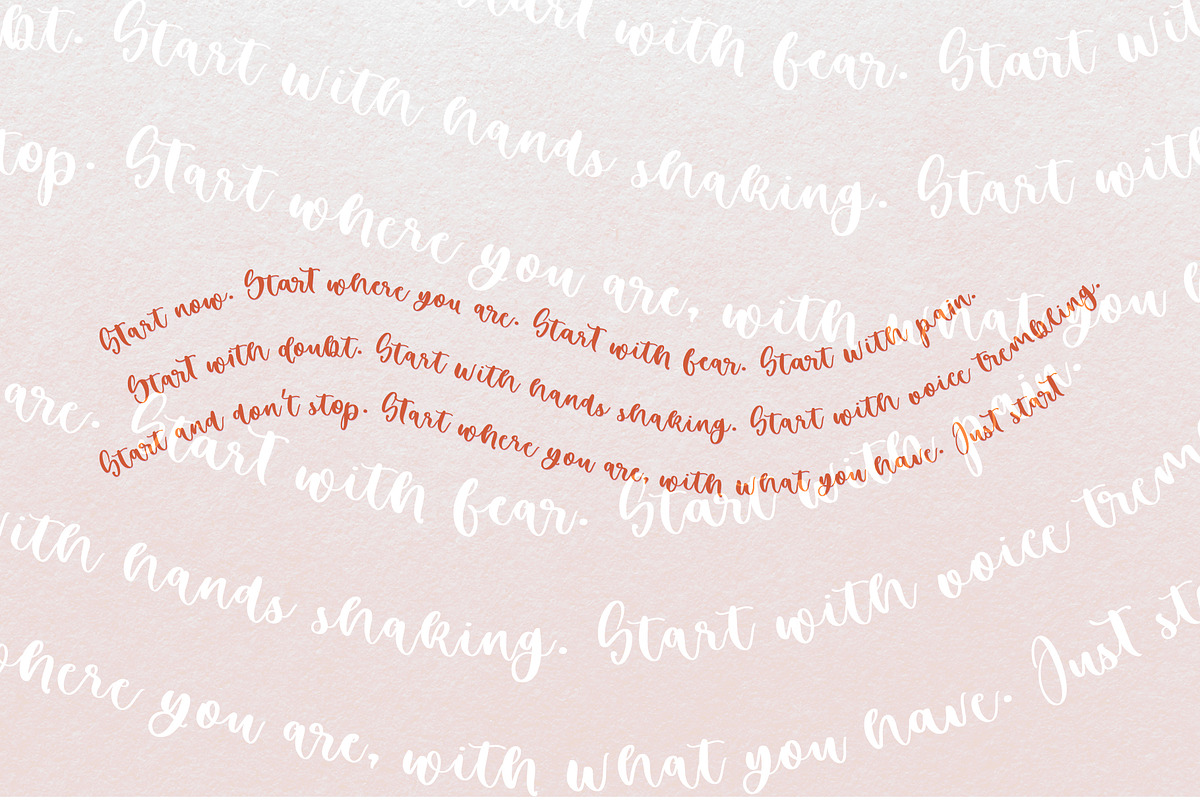 bt. Start with hands shaking. Start wit
Start with fear. Start wit
top. Start where you are, with what you
Start now. Start where you are. Start with fear. Start with pain.
Start with doubt. Start with hands shaking. Start with voice trembling.
Start and don't stop. Start where you are, with what you have. Just start
are. Start with fear. Start with pain.
with hands shaking. Start with voice trem
where you are, with what you have. Just st